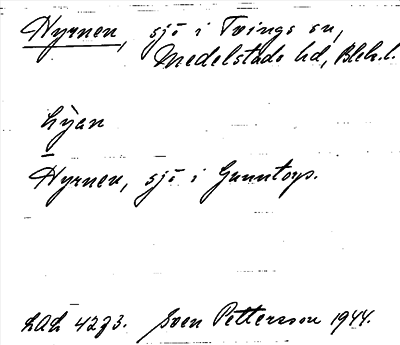 Hyrnen, sjö i Tvings sn,
Medelstads hd, Blek. l.
Hyrnen, sjö i Gunntorps.
LAL 4273. Sven Pettersson 1944.